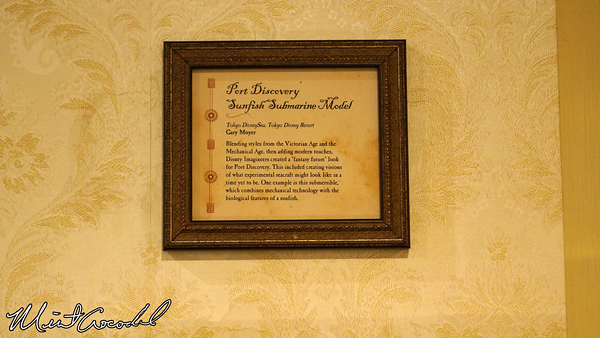 Port Discovery
Sunfish Submarine Model
Tokyo DisneySea, Tokyo Disney Resort
Gary Moyer
Blending styles from the Victorian Age and the
Mechanical Age, then adding modern touches,
Disney Imagineers created a 'fantasy future' look
for Port Discovery. This included creating visions
of what experimental seacraft might look like in a
time yet to be. One example is this submersible,
which combines mechanical technology with the
biological features of a sunfish.
MintCrocodile